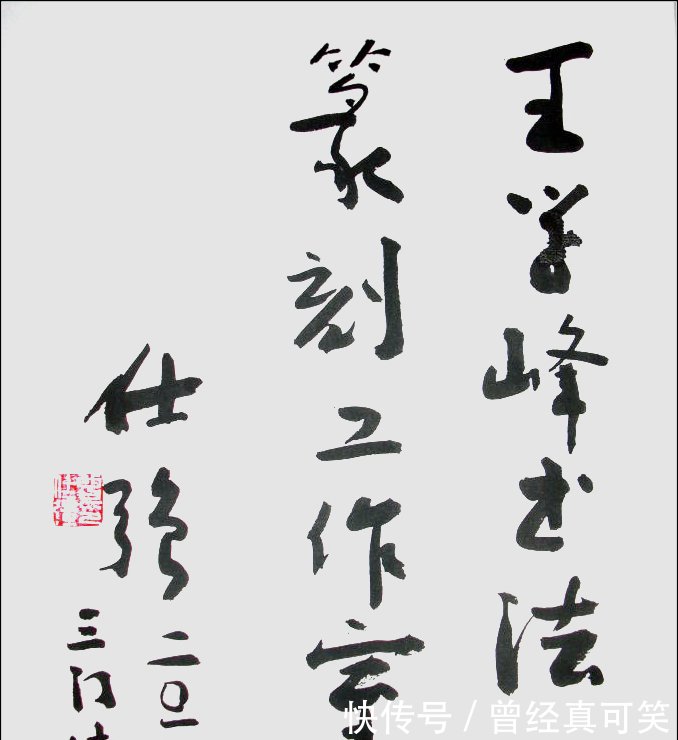 王学峰书法
篆刻工作室
仕强
二〇一
三门
快传号 / 曾经真可笑